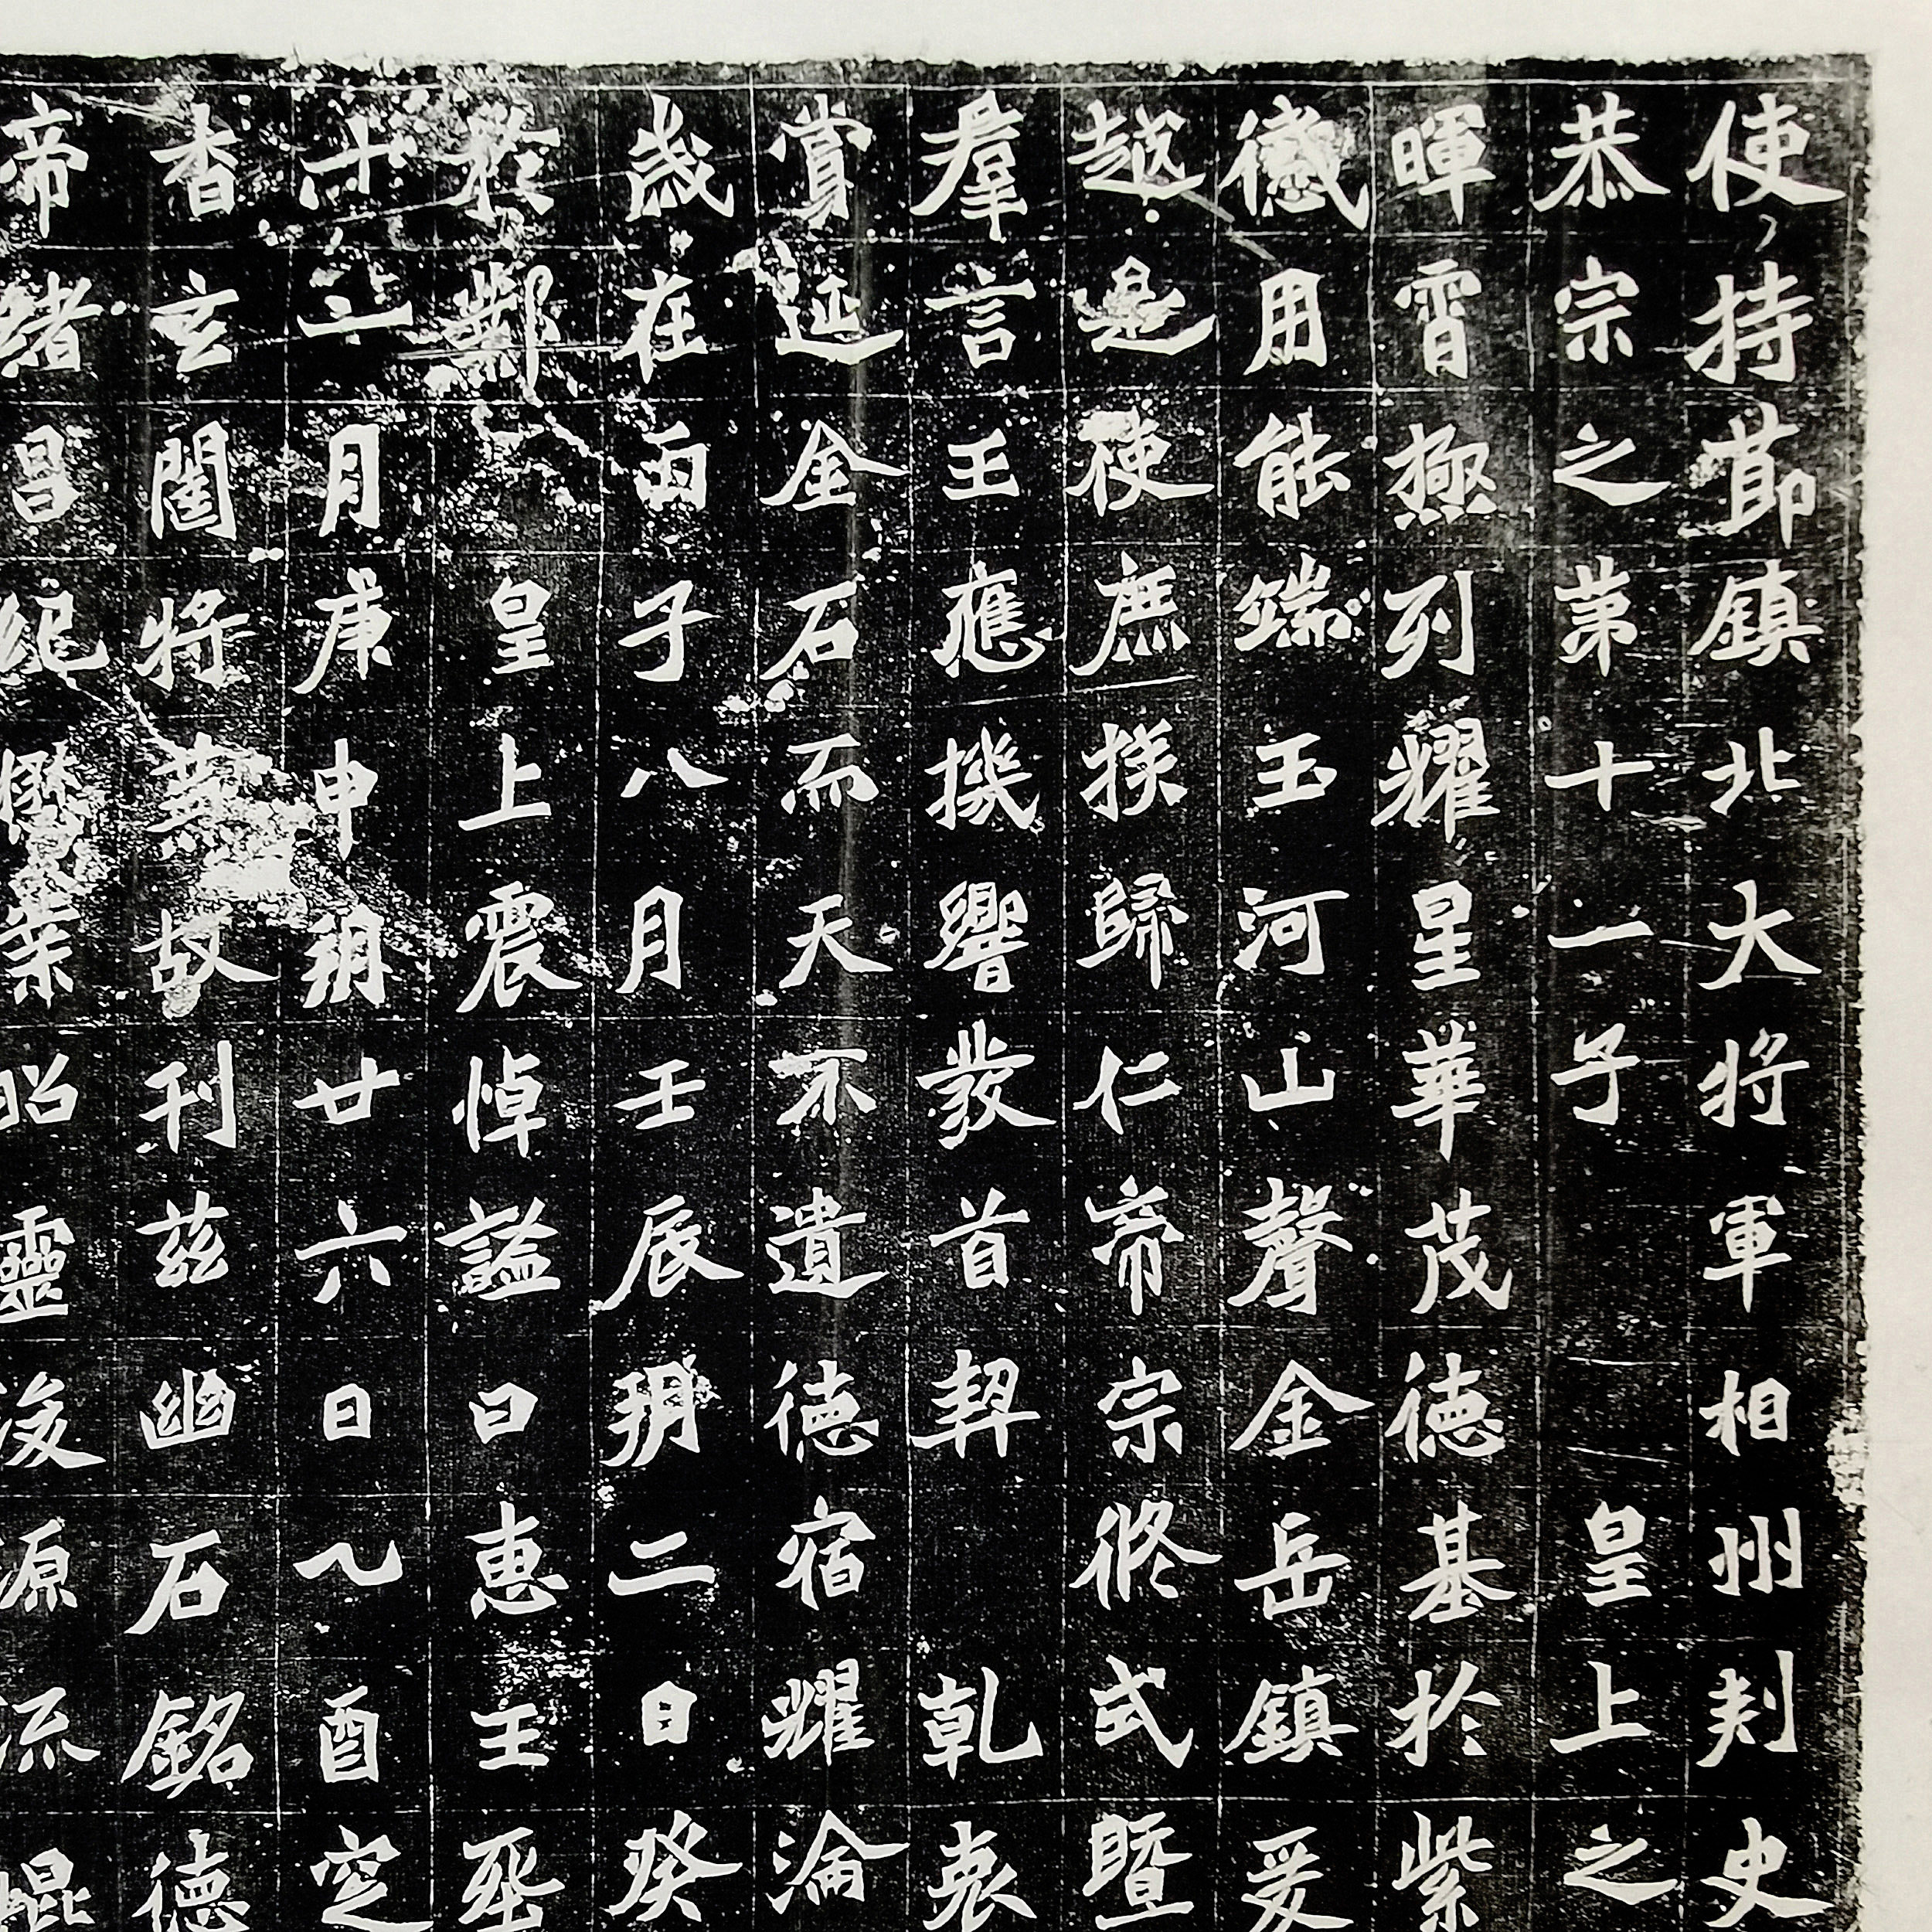 使持節鎮北大將軍相州刺史
恭宗之第十一子皇上之
暉霄極列耀星華茂德基於紫
徽用能端玉河山聲金岳鎮爰
越是使庶族歸仁帝宗攸式暨
羣言王應機響發首契乾衷
賞延金石而天不遺德宿耀淪
歲在丙子八月壬辰朔二日癸
於鄴皇上震悼謚曰惠王葬
十一月庚申朔廿六日乙酉窆
杳玄闥將蕪故刊茲幽石銘德
帝緒昌紀懋業昭靈浚源流崐